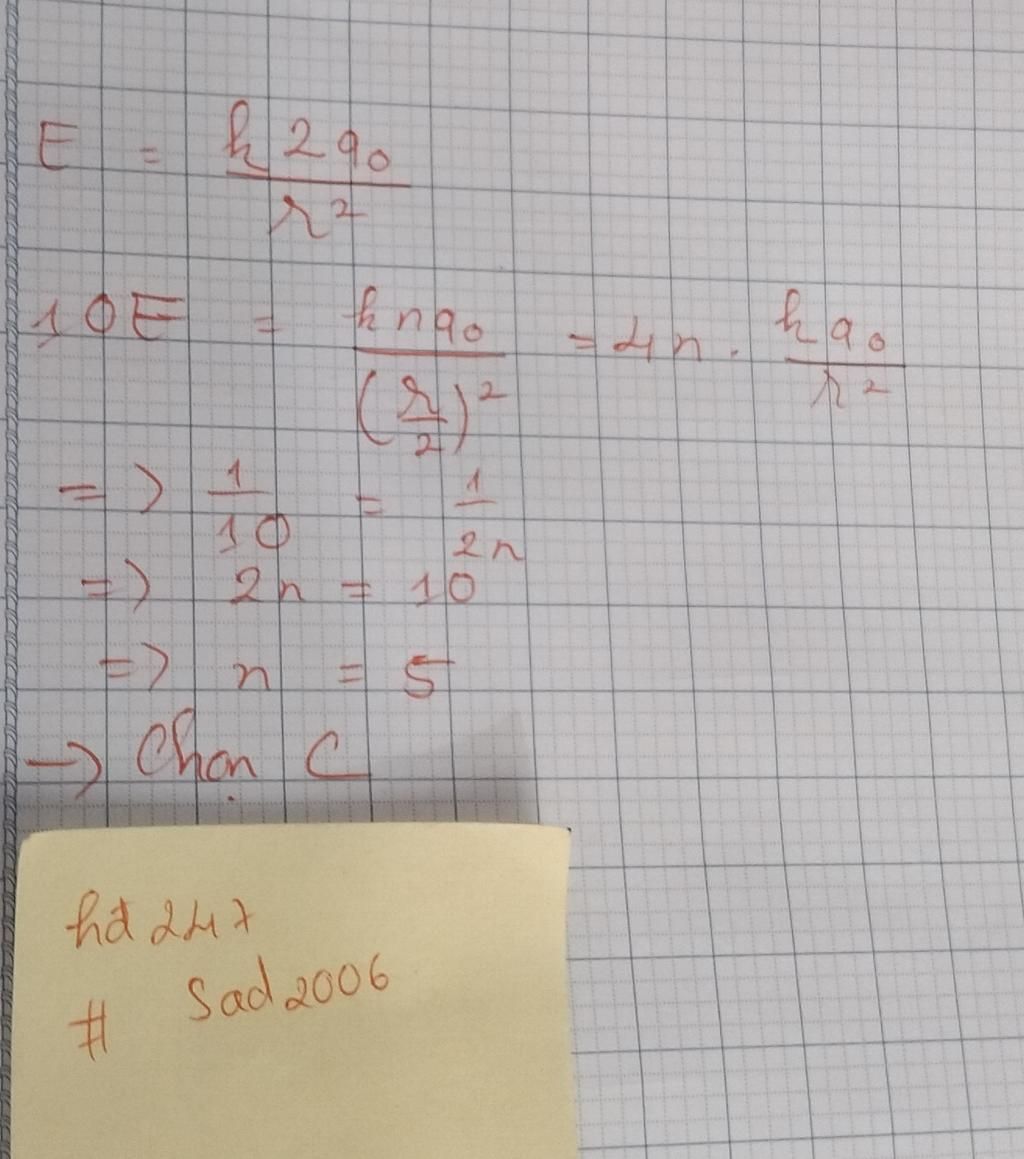 E = k2q₀/r²
10E = knq₀/(r/2)² = 4n . kq₀/r²
=> 1/10 = 1/2n
=> 2n = 10
=> n = 5
-> Chọn C
hd247
# Sad2006